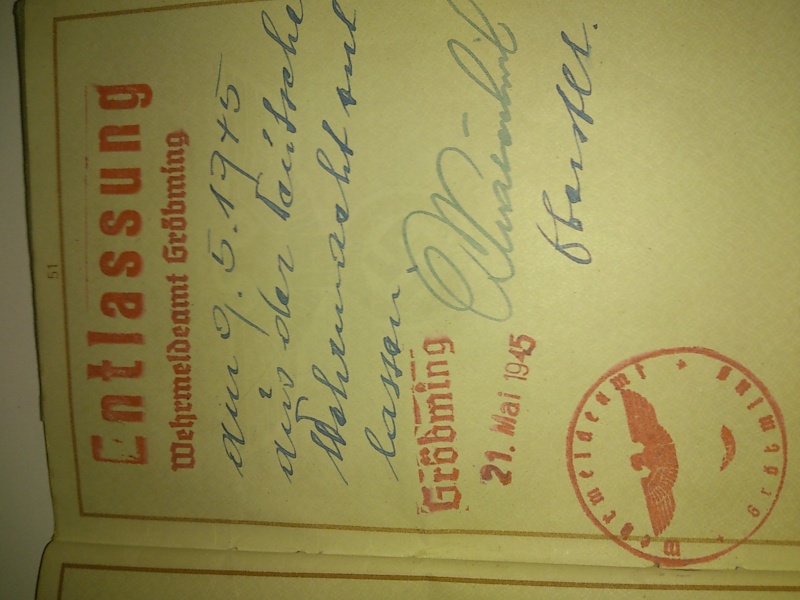 51
Entlassung
Wehrmeldeamt Gröbming
am 9.5.1945
aus der Deutschen
Wehrmacht ent
lassen
Gröbming
21. Mai 1945
Oberstlt.
Wehrmeldeamt * Gröbming *